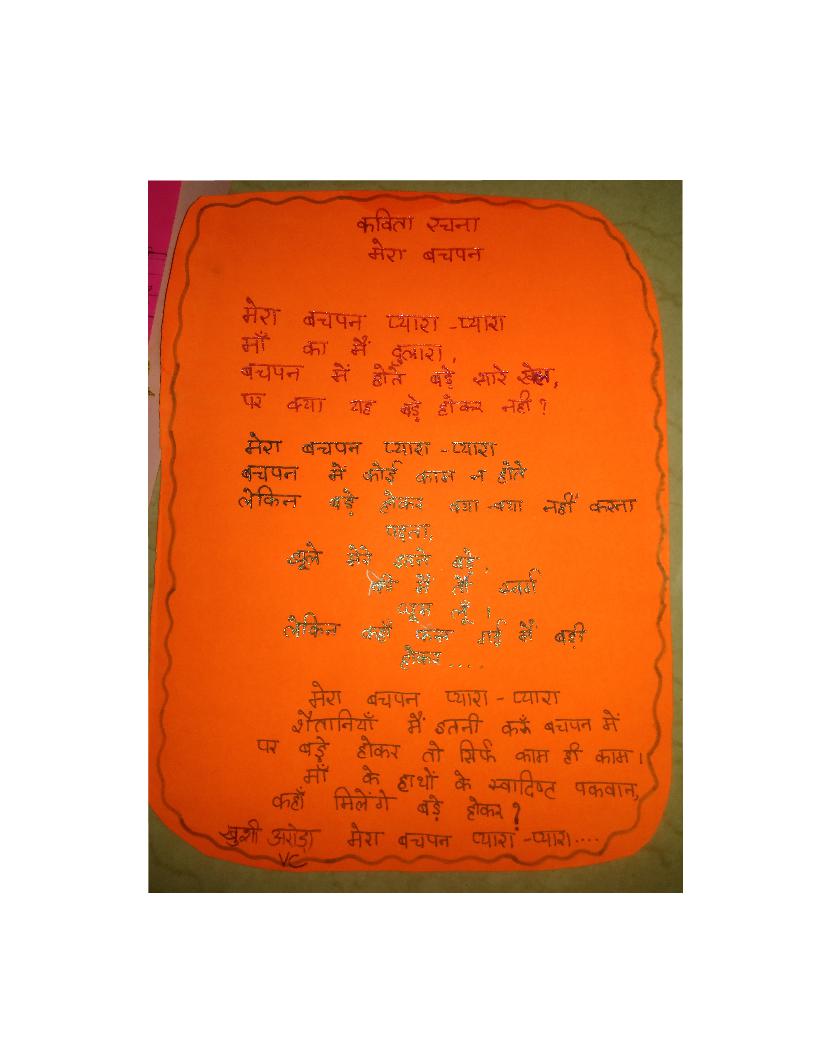 कविता रचना
मेरा बचपन
मेरा बचपन प्यारा -प्यारा
माँ का मैं दुलारा,
बचपन में होते बड़े सारे खेल,
पर क्या यह बड़े होकर नहीं ?
मेरा बचपन प्यारा -प्यारा
बचपन में कोई काम न होते
लेकिन बड़े होकर क्या -क्या नहीं करना
पड़ता,
झूले मेरे इतने बड़े,
कि मैं तो स्वर्ग
घूम लूँ ।
लेकिन कहाँ फंस गई मैं बड़ी
होकर ....
मेरा बचपन प्यारा - प्यारा
शैतानियाँ मैं इतनी करूँ बचपन में
पर बड़े होकर तो सिर्फ काम ही काम।
माँ के हाथों के स्वादिष्ट पकवान,
कहाँ मिलेंगे बड़े होकर ?
खुशी अरोड़ा मेरा बचपन प्यारा -प्यारा....
VC